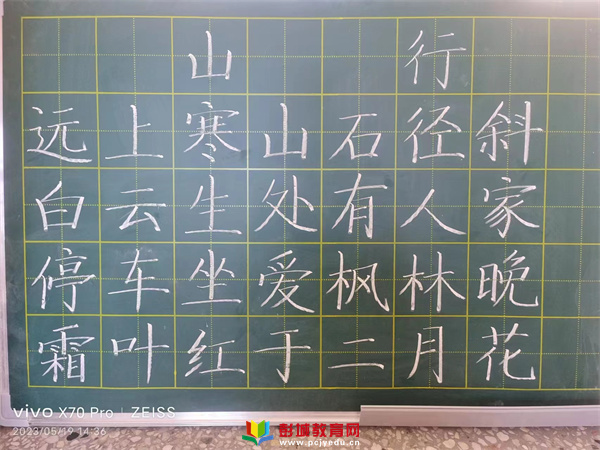 山行
远上寒山石径斜
白云生处有人家
停车坐爱枫林晚
霜叶红于二月花
vivo X70 Pro | ZEISS
2023/05/19 14:36
彭城教育网
www.pcjyedu.cn